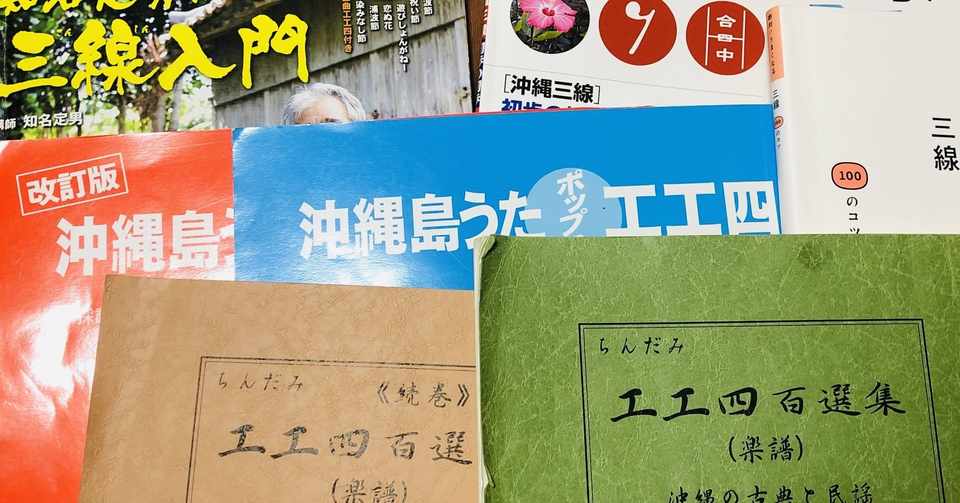 三線入門
講師 知名定男
波節
祝い節
遊びしょんがねー
恋ぬ花
浦波節
染みなし節
曲工工四付き
合
四
中
[沖縄三線]
三線
100
のコツ
改訂版
沖縄島う
沖縄島うた
ポップ
工工四
ちんだみ
《続巻》
工工四百選
(楽譜)
ちんだみ
工工四百選集
(楽譜)
沖縄の古典と民謡